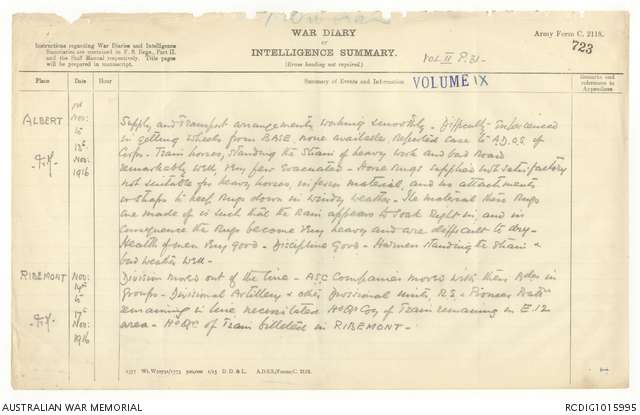 WAR DIARY
or
INTELLIGENCE SUMMARY.
(Erase heading not required.)
Army Form C. 2118.
723
Instructions regarding War Diaries and Intelligence
Summaries are contained in F. S. Regs., Part II.
and the Staff Manual respectively. Title pages
will be prepared in manuscript.
VOL II P. 31-
VOLUME IX
Place
Date
Hour
Summary of Events and Information
Remarks and
references to
Appendices
ALBERT
1st
Nov:
to
13th
Nov:
1916
Supply and Transport arrangements working smoothly - Difficulty experienced
in getting wheels from BASE none available. Reported case to A.D.O.S of
Corps - Train horses, standing the strain of heavy work and bad Road
remarkably well, very few evacuated - Horse Rugs supplied not satisfactory
not suitable for heavy horses, inferior material, and no attachments
or straps to keep Rugs down in windy weather. The material these Rugs
are made of is such that the rain appears to soak right in, and in
consequence the Rugs become very heavy and are difficult to dry -
Health of men very good - Discipline Good - Harness standing the strain &
bad weather well -
RIBEMONT
Nov:
14th
to
17th
Nov:
1916
Division moved out of the line - A.S.C Companies moved with their Bdes in
Groups - Divisional Artillery & other Divisional units, R.E. & Pioneer Battn
remaining in line necessitated HdQrs Coy of Train remaining in E.12
area - HdQrs of Train billeted in RIBEMONT -
1577 Wt. W10791/1773 500,000 1/15 D. D. & L. A.D.S.S./Forms/C. 2118.
AUSTRALIAN WAR MEMORIAL
RCDIG1015995